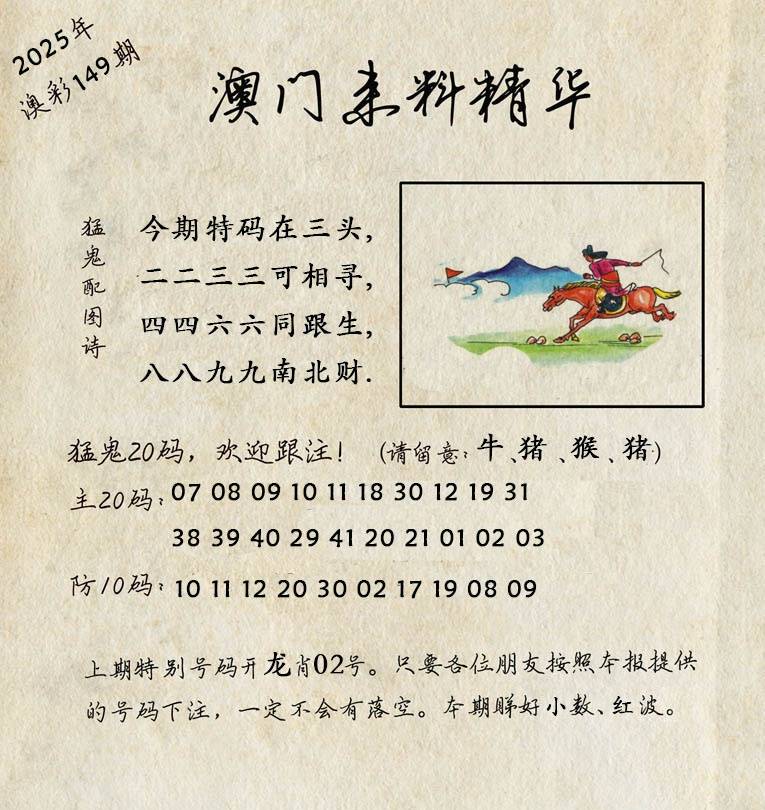 2025年
澳彩149期
澳门来料精华
猛鬼配图诗
今期特码在三头,
二二三三可相寻,
四四六六同跟生,
八八九九南北财.
猛鬼20码，欢迎跟注！（请留意：牛、猪、猴、猪）
主20码：07 08 09 10 11 18 30 12 19 31
38 39 40 29 41 20 21 01 02 03
防10码：10 11 12 20 30 02 17 19 08 09
上期特别号码开龙肖02号。只要各位朋友按照本报提供
的号码下注，一定不会有落空。本期睇好小数、红波。